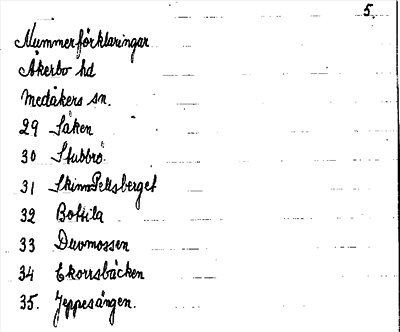 5.
Nummerförklaringar
Åkerbo hd
Medåkers sn.
29 Saken
30 Stubbrö
31 SkinnPellsberget
32 Bottila
33 Duvmossen
34 Ekorrsbäcken
35. Jeppesängen.